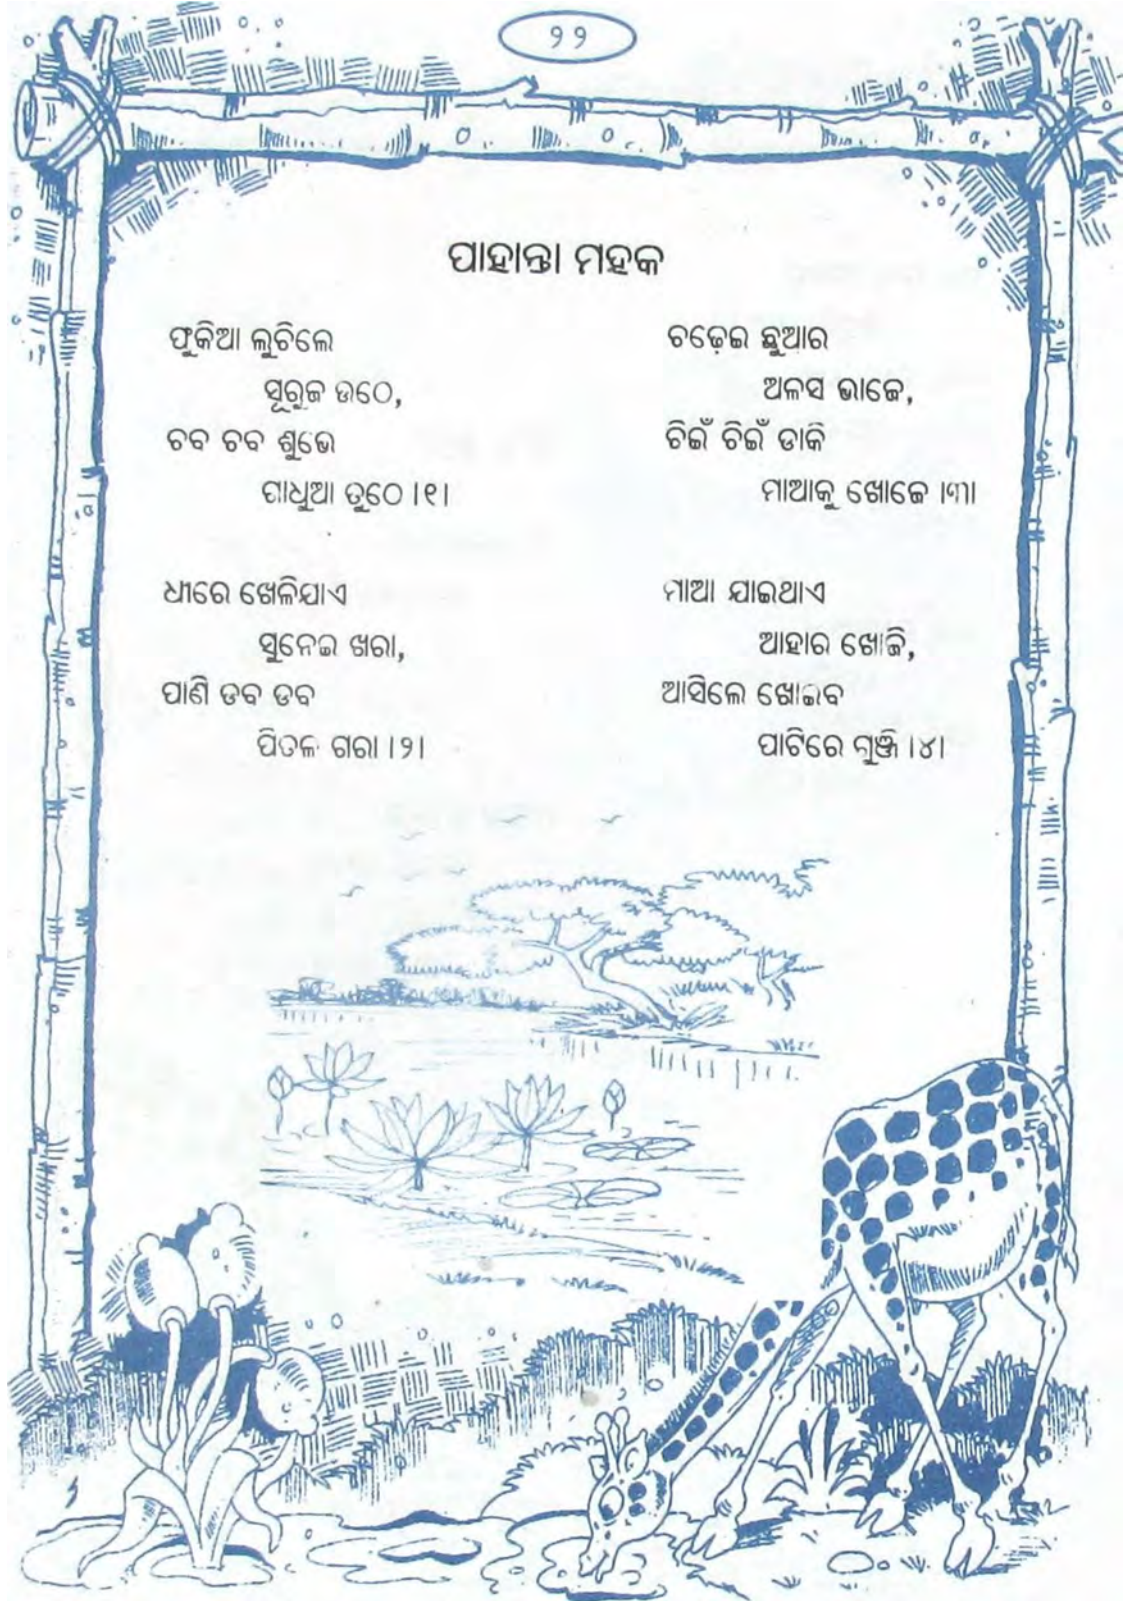 ୨୨
ପାହାନ୍ତା ମହକ
ଫୁକିଆ ଲୁଚିଲେ
ସୂରୁଜ ଉଠେ,
ଚବ ଚବ ଶୁଭେ
ଗାଧୁଆ ତୁଠେ ।୧।
ଧୀରେ ଖେଳିଯାଏ
ସୁନେଇ ଖରା,
ପାଣି ଡବ ଡବ
ପିତଳ ଗରା ।୨।
ଚଢ଼େଇ ଛୁଆର
ଅଳସ ଭାଜେ,
ଚିଇଁ ଚିଇଁ ଡାକି
ମାଆକୁ ଖୋଜେ ।୩।
ମାଆ ଯାଇଥାଏ
ଆହାର ଖୋଜି,
ଆସିଲେ ଖୋଇବ
ପାଟିରେ ଗୁଞ୍ଜି ।୪।